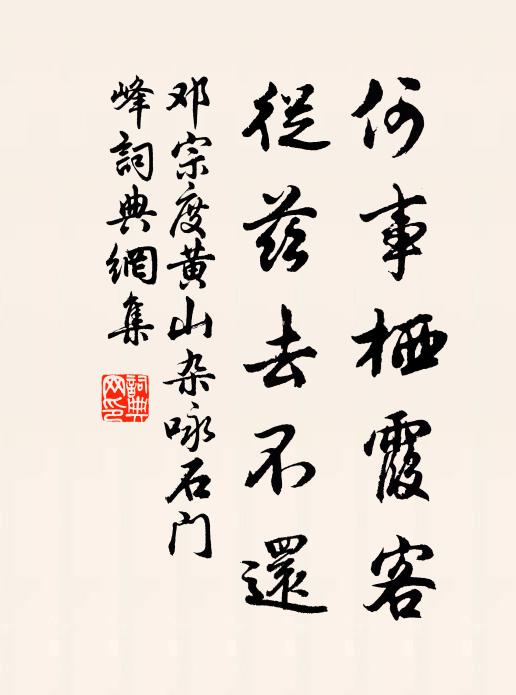 何事栖霞客
從茲去不還
邓宗度黄山杂咏石门
峰詞典網集
詞典网印